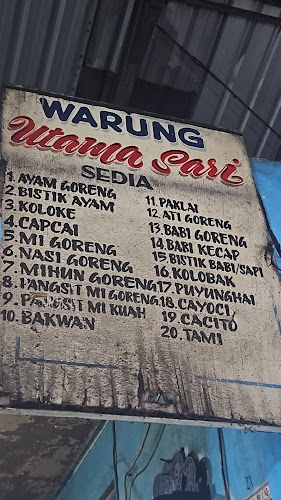 WARUNG
Utama Sari
SEDIA
1. AYAM GORENG
2. BISTIK AYAM
3. KOLOKE
4. CAPCAI
5. MI GORENG
6. NASI GORENG
7. MIHUN GORENG
8. PANGSIT MI GORENG
9. PANGSIT MI KUAH
10. BAKWAN
11. PAKLAI
12. ATI GORENG
13. BABI GORENG
14. BABI KECAP
15. BISTIK BABI/SAPI
16. KOLOBAK
17. PUYUNGHAI
18. CAYOCI
19. CACITO
20. TAMI